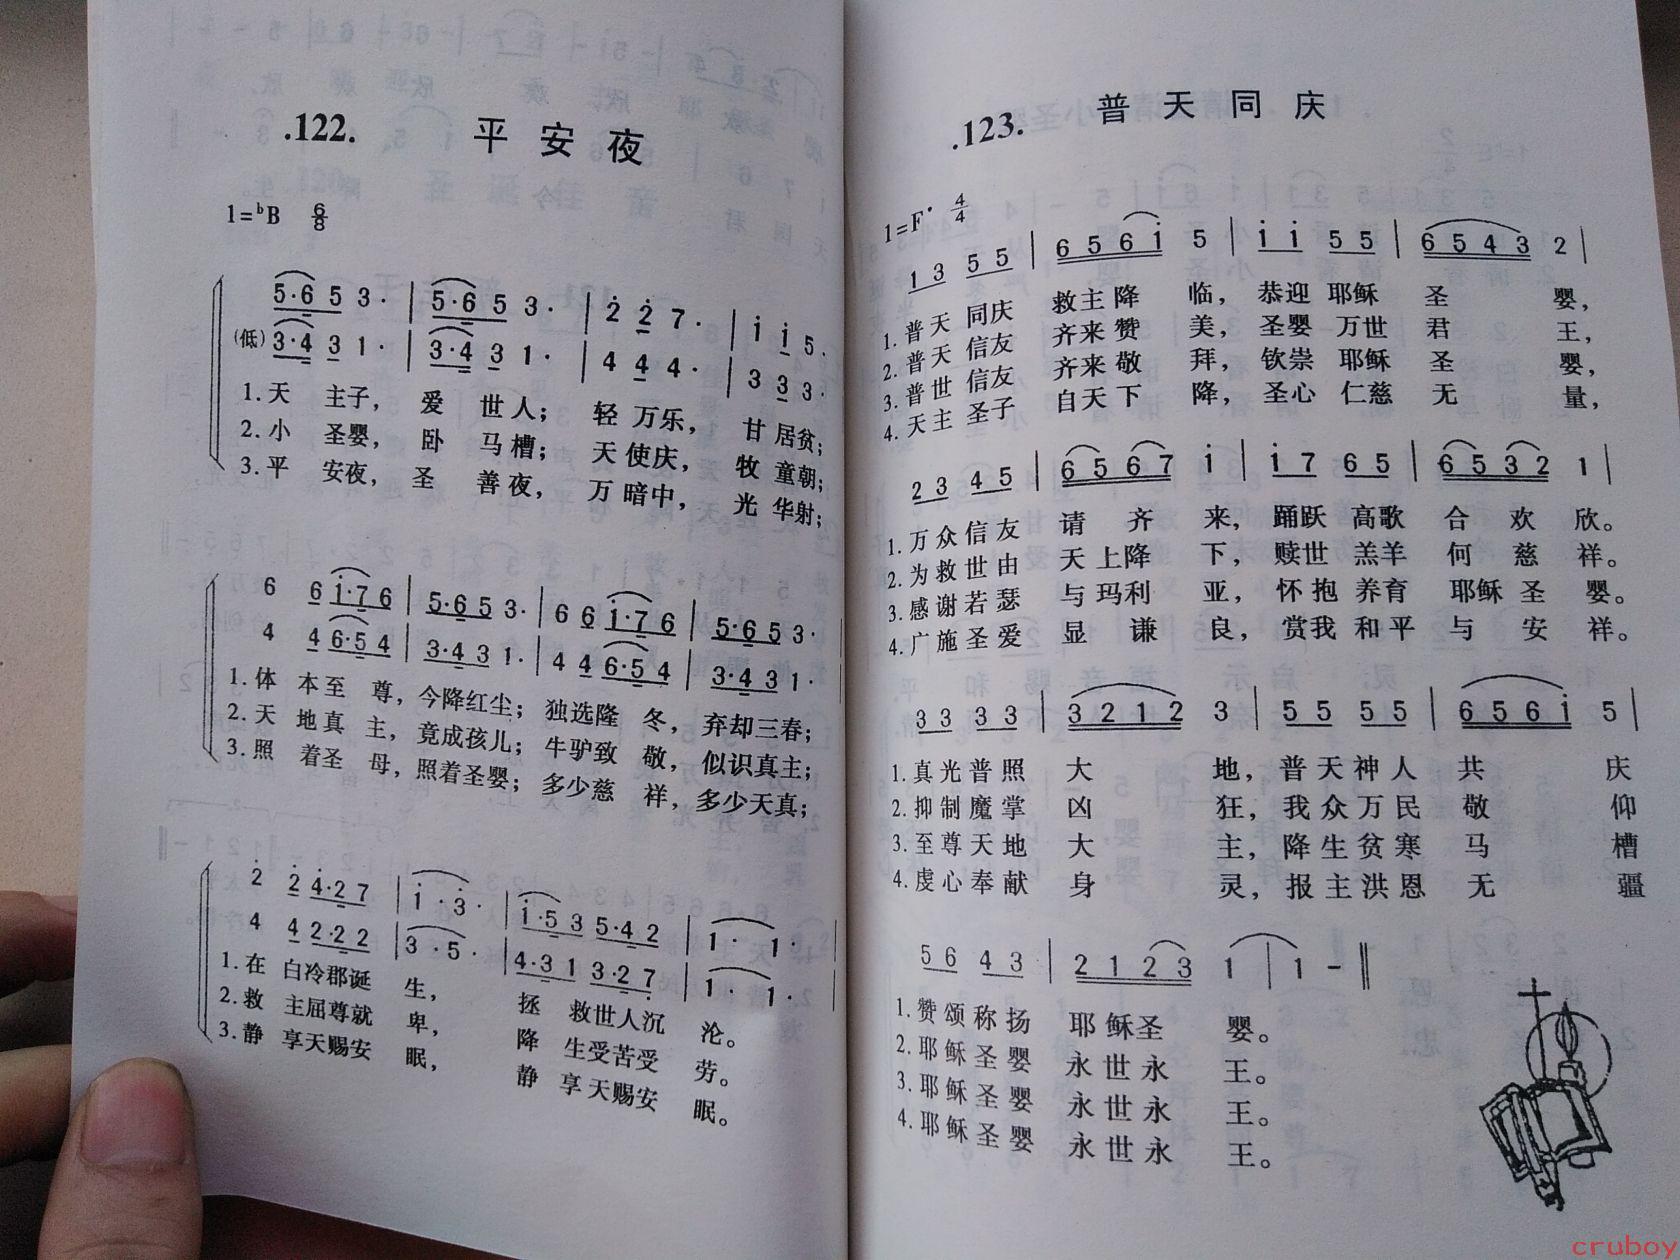 .122. 平安夜
1=ᵇB 6/8
5·6 5 3· | 5·6 5 3· | 2 2 7· | i i 5·
(低) 3·4 3 1· | 3·4 3 1· | 4 4 4· | 3 3 3·
1.天 主子， 爱 世人； 轻 万乐， 甘 居贫；
2.小 圣婴， 卧 马槽； 天 使庆， 牧 童朝；
3.平 安夜， 圣 善夜， 万 暗中， 光 华射；
6 6 i·7 6 | 5·6 5 3· | 6 6 i·7 6 | 5·6 5 3·
4 4 6·5 4 | 3·4 3 1· | 4 4 6·5 4 | 3·4 3 1·
1.体 本至 尊，今降红尘； 独选隆 冬， 弃却三春；
2.天 地真 主，竟成孩儿； 牛驴致 敬， 似识真主；
3.照 着圣 母，照着圣婴； 多少慈 祥，多少天真；
2 2 4·2 7 | i· 3· | i·5 3 5·4 2 | 1· 1·
4 4 2·2 2 | 3· 5· | 4·3 1 3·2 7 | 1· 1·
1.在 白冷郡诞 生， 拯 救世人沉 沦。
2.救 主屈尊就 卑， 降 生受苦受 劳。
3.静 享天赐安 眠， 静 享天赐安 眠。
.123. 普天同庆
1=F· 4/4
1 3 5 5 | 6 5 6 i 5 | i i 5 5 | 6 5 4 3 2 |
1.普天 同庆 救主降 临， 恭迎 耶稣 圣 婴，
2.普天 信友 齐来赞 美， 圣婴 万世 君 王，
3.普世 信友 齐来敬 拜， 钦崇 耶稣 圣 婴，
4.天主 圣子 自天下 降， 圣心 仁慈 无 量，
2 3 4 5 | 6 5 6 7 i | i 7 6 5 | 6 5 3 2 1 |
1.万众信友 请 齐 来， 踊跃 高歌 合 欢 欣。
2.为救世由 天上降 下， 赎世 羔羊 何 慈 祥。
3.感谢若瑟 与玛利 亚， 怀抱 养育 耶稣 圣 婴。
4.广施圣爱 显 谦 良， 赏我 和平 与 安 祥。
3 3 3 3 | 3 2 1 2 3 | 5 5 5 5 | 6 5 6 i 5 |
1.真光普照 大 地， 普天神人 共 庆
2.抑制魔掌 凶 狂， 我众万民 敬 仰
3.至尊天地 大 主， 降生贫寒 马 槽
4.虔心奉献 身 灵， 报主洪恩 无 疆
5 6 4 3 | 2 1 2 3 1 | 1 - ‖
1.赞颂称扬 耶稣圣 婴。
2.耶稣圣婴 永世永 王。
3.耶稣圣婴 永世永 王。
4.耶稣圣婴 永世永 王。
cruboy